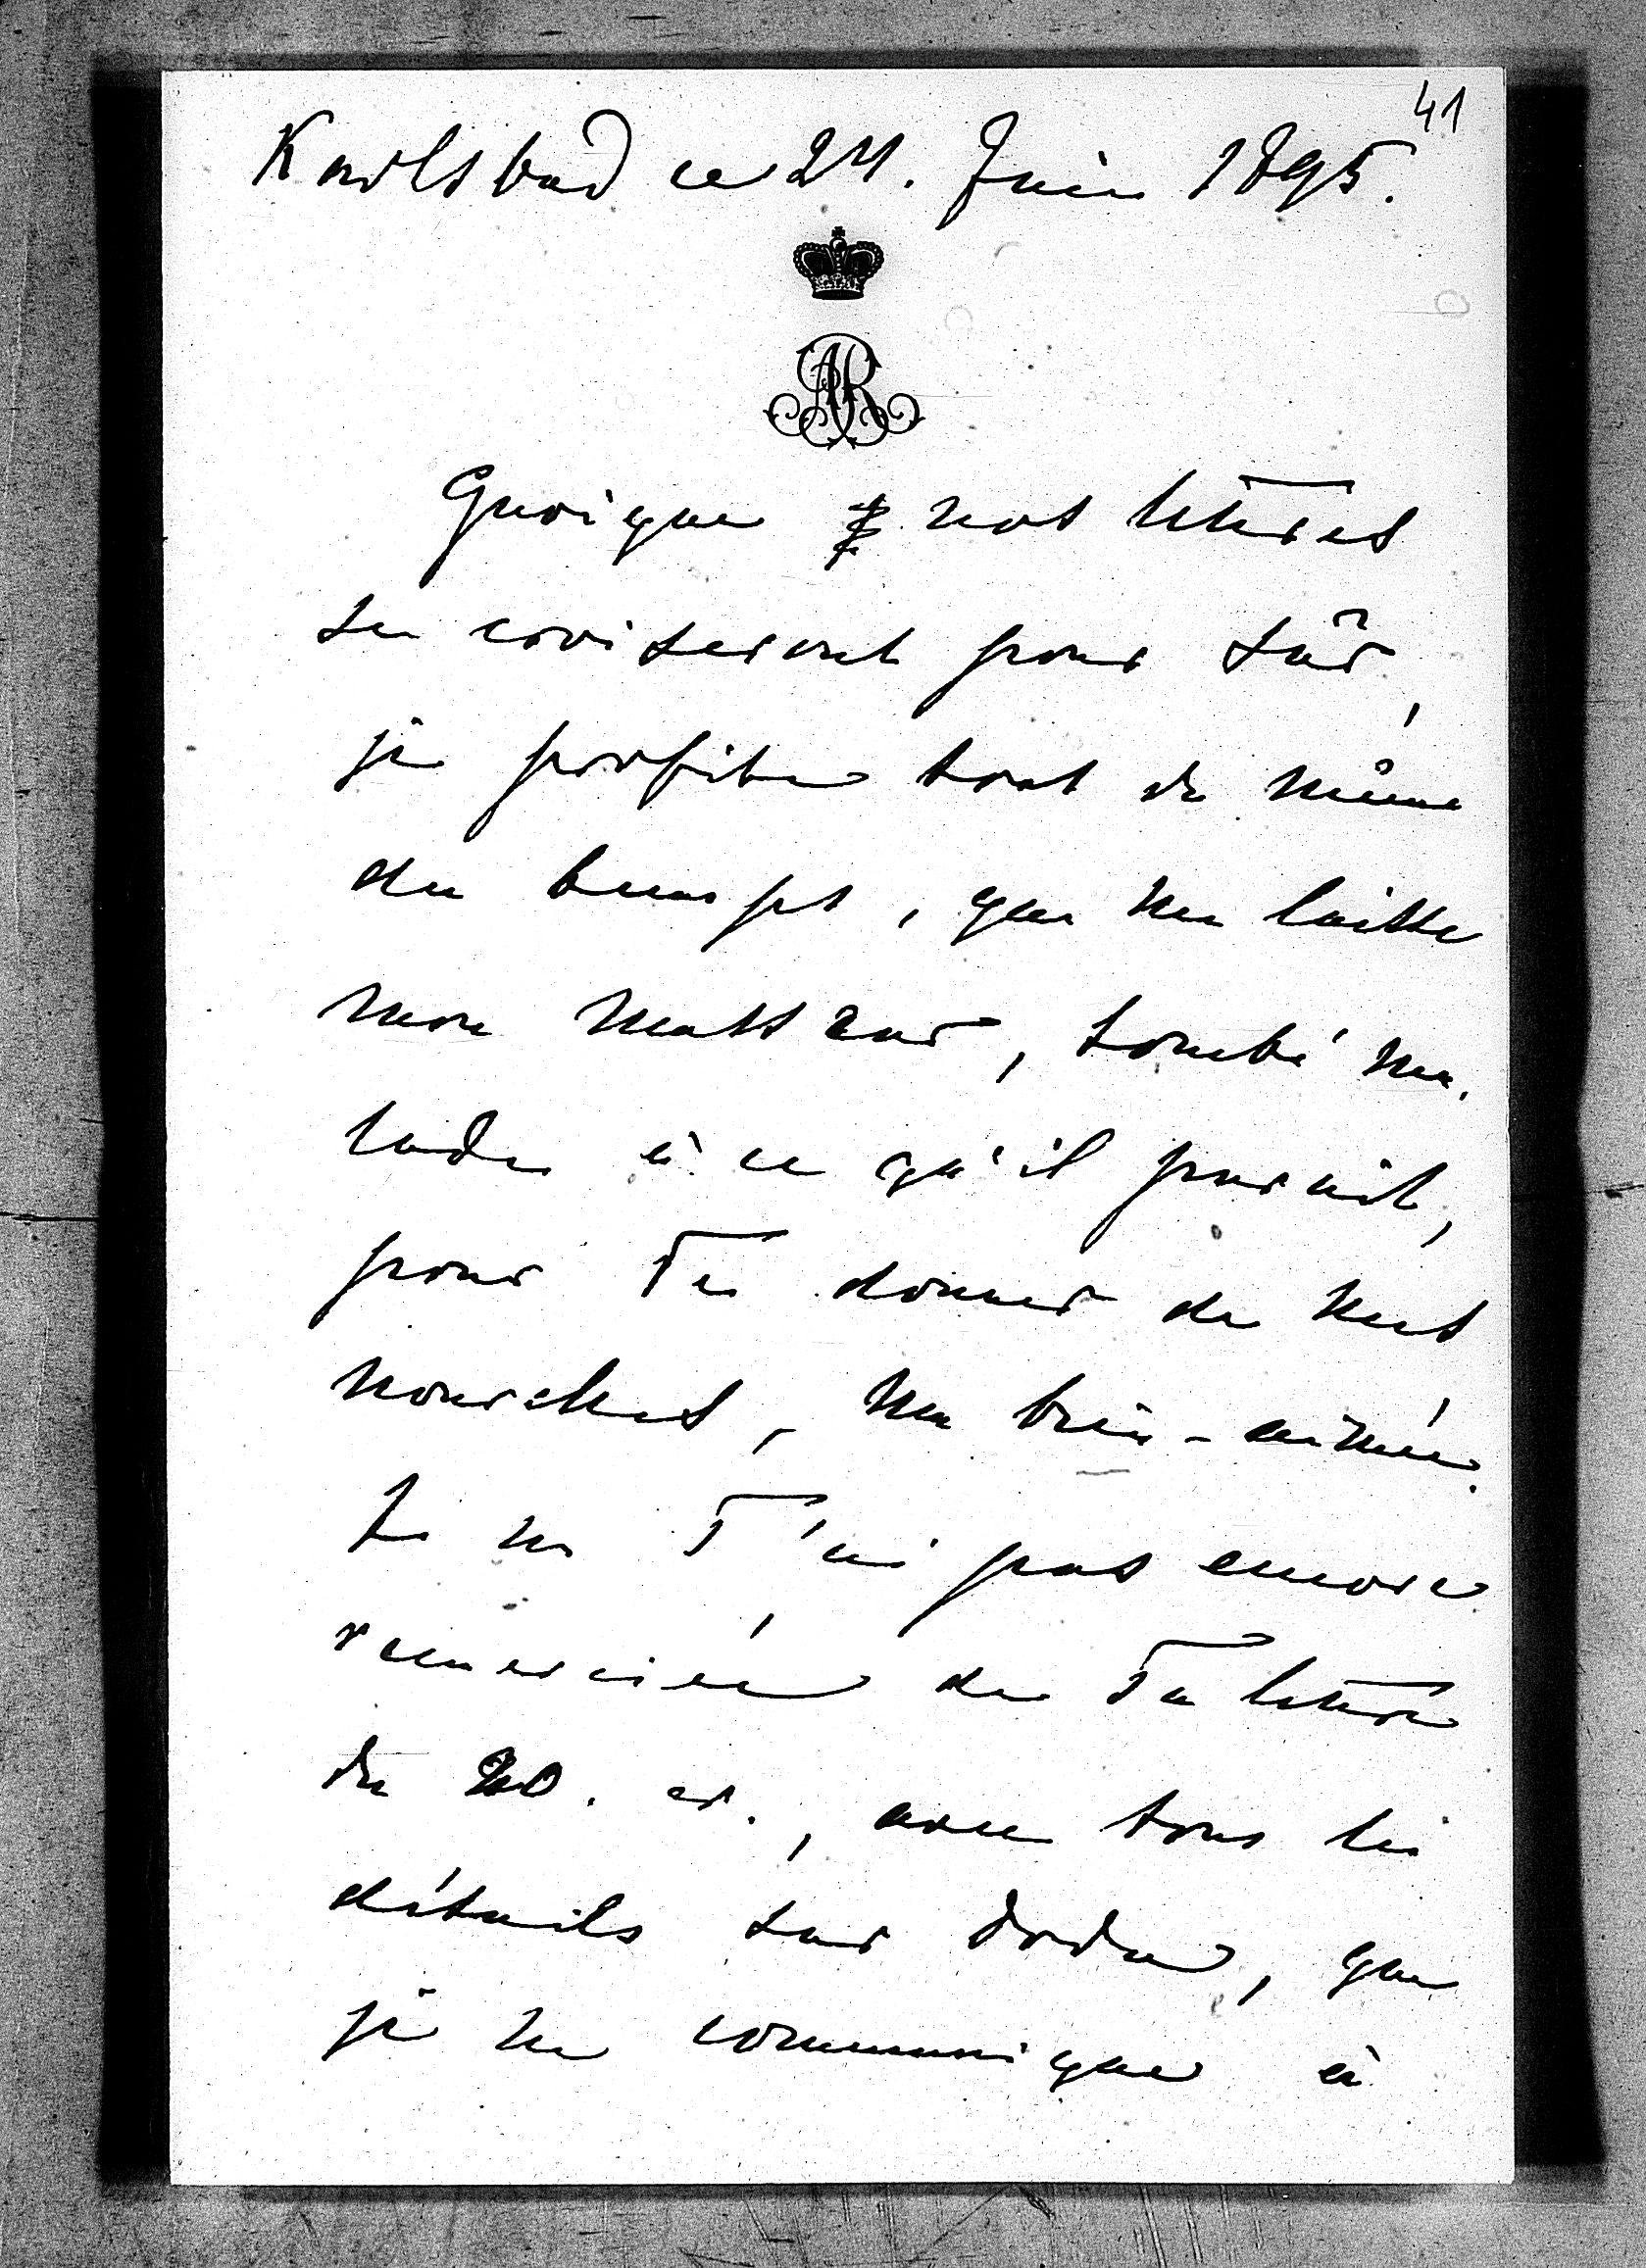 41
Karlsbad ce 24. Juin 1895.
AR
Quoique nos lettres
se croiseront pour sûr,
je profite tout de même
du temps, que me laisse
mon masseur, tombé ma-
lade à ce qu'il parait,
pour Te donner de mes
nouvelles, ma bien-aimée.
Je ne T'ai pas encore
remerciée de Ta lettre
du 20. cr., avec tous les
détails sur Doda, que
je ne communique à